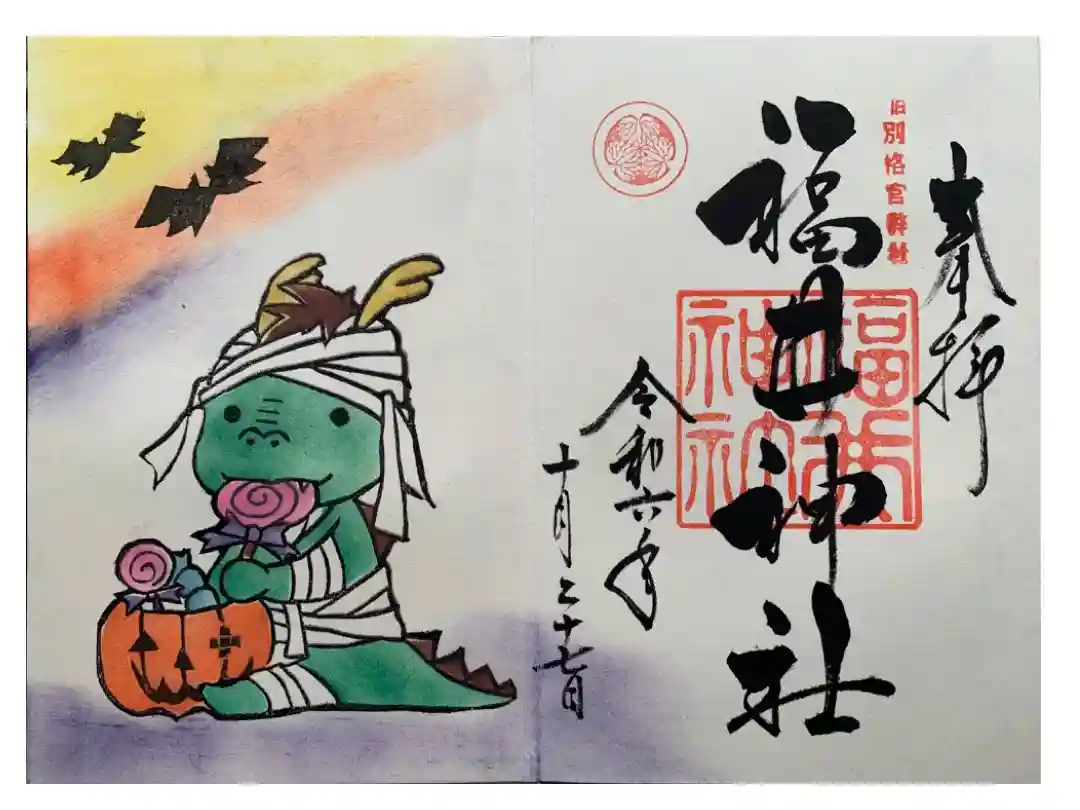 奉拝
旧別格官幣社
福井神社
福井神社
令和六年
十月二十七日